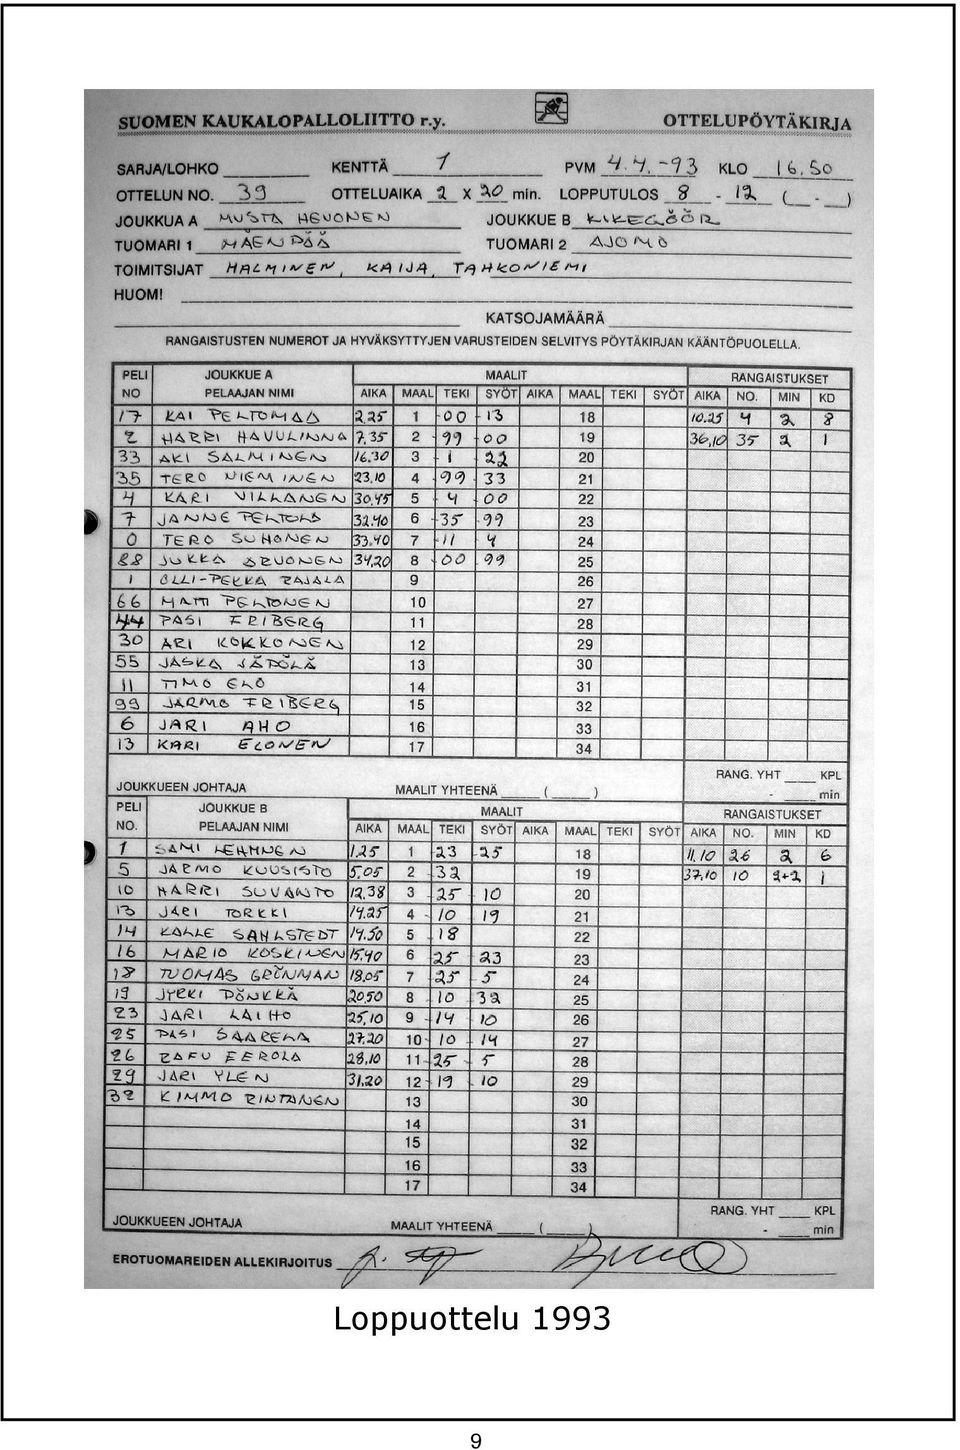 SUOMEN KAUKALOPALLOLIITTO r.y. OTTELUPÖYTÄKIRJA
SARJA/LOHKO KENTTÄ 1 PVM 4.4.-93 KLO 16.50
OTTELUN NO. 39 OTTELUAIKA 2 X 20 min. LOPPUTULOS 8 - 12 ( - )
JOUKKUA A MUSTA HEVONEN JOUKKUE B KIKEGÖÖR
TUOMARI 1 MÄENPÄÄ TUOMARI 2 AJOMO
TOIMITSIJAT HALMINEN, KAIJA, TAHKONIEMI
HUOM!
KATSOJAMÄÄRÄ
RANGAISTUSTEN NUMEROT JA HYVÄKSYTTYJEN VARUSTEIDEN SELVITYS PÖYTÄKIRJAN KÄÄNTÖPUOLELLA.
PELI JOUKKUE A MAALIT RANGAISTUKSET
NO PELAAJAN NIMI AIKA MAAL TEKI SYÖT AIKA MAAL TEKI SYÖT AIKA NO. MIN KD
17 KAI PELTOMAA 2.25 1 00 - 13 18 10.25 4 2 8
2 HARRI HAVULINNA 7.35 2 - 99 - 00 19 36,10 35 2 1
33 AKI SALMINEN 16.30 3 - 1 - 22 20
35 TERO NIEMINEN 23.10 4 - 99 - 33 21
4 KARI VILLANEN 30.45 5 - 4 - 00 22
7 JANNE PELTOLA 32.40 6 - 35 - 99 23
0 TERO SUHONEN 33.40 7 - 11 - 4 24
88 JUKKA ARVONEN 34,20 8 - 00 99 25
1 OLLI-PEKKA RAJALA 9 26
66 MATTI PELTONEN 10 27
44 PASI FRIBERG 11 28
30 ARI KOKKONEN 12 29
55 JASKA JÄPÖLÄ 13 30
11 TIMO ELO 14 31
99 JARMO FRIBERG 15 32
6 JARI AHO 16 33
13 KARI ELONEN 17 34
JOUKKUEEN JOHTAJA MAALIT YHTEENÄ ( ) RANG. YHT KPL
- min
PELI JOUKKUE B MAALIT RANGAISTUKSET
NO. PELAAJAN NIMI AIKA MAAL TEKI SYÖT AIKA MAAL TEKI SYÖT AIKA NO. MIN KD
1 SAMI LEHMNEN 1.25 1 - 23 - 25 18 11.10 26 2 6
5 JARMO KUUSISTO 5.05 2 - 32 19 37.10 10 2+2 1
10 HARRI SUVANTO 12.38 3 - 25 - 10 20
13 JARI TORKKI 14.25 4 - 10 - 19 21
14 KALLE SAHLSTEDT 14.50 5 - 18 22
16 MARIO KOSKINEN 15.40 6 25 - 23 23
18 TUOMAS GRÖNMAN 18.05 7 - 25 - 5 24
19 JYRKI PÖNKKÄ 20.50 8 - 10 - 32 25
23 JARI LAIHO 25,10 9 - 14 - 10 26
25 PASI SAARELA 27.20 10 - 10 - 14 27
26 RAFU EEROLA 28,10 11 - 25 - 5 28
29 JARI YLEN 31.20 12 - 19 - 10 29
32 KIMMO RINTANEN 13 30
14 31
15 32
16 33
17 34
JOUKKUEEN JOHTAJA MAALIT YHTEENÄ ( ) RANG. YHT KPL
- min
EROTUOMAREIDEN ALLEKIRJOITUS
Loppuottelu 1993
9